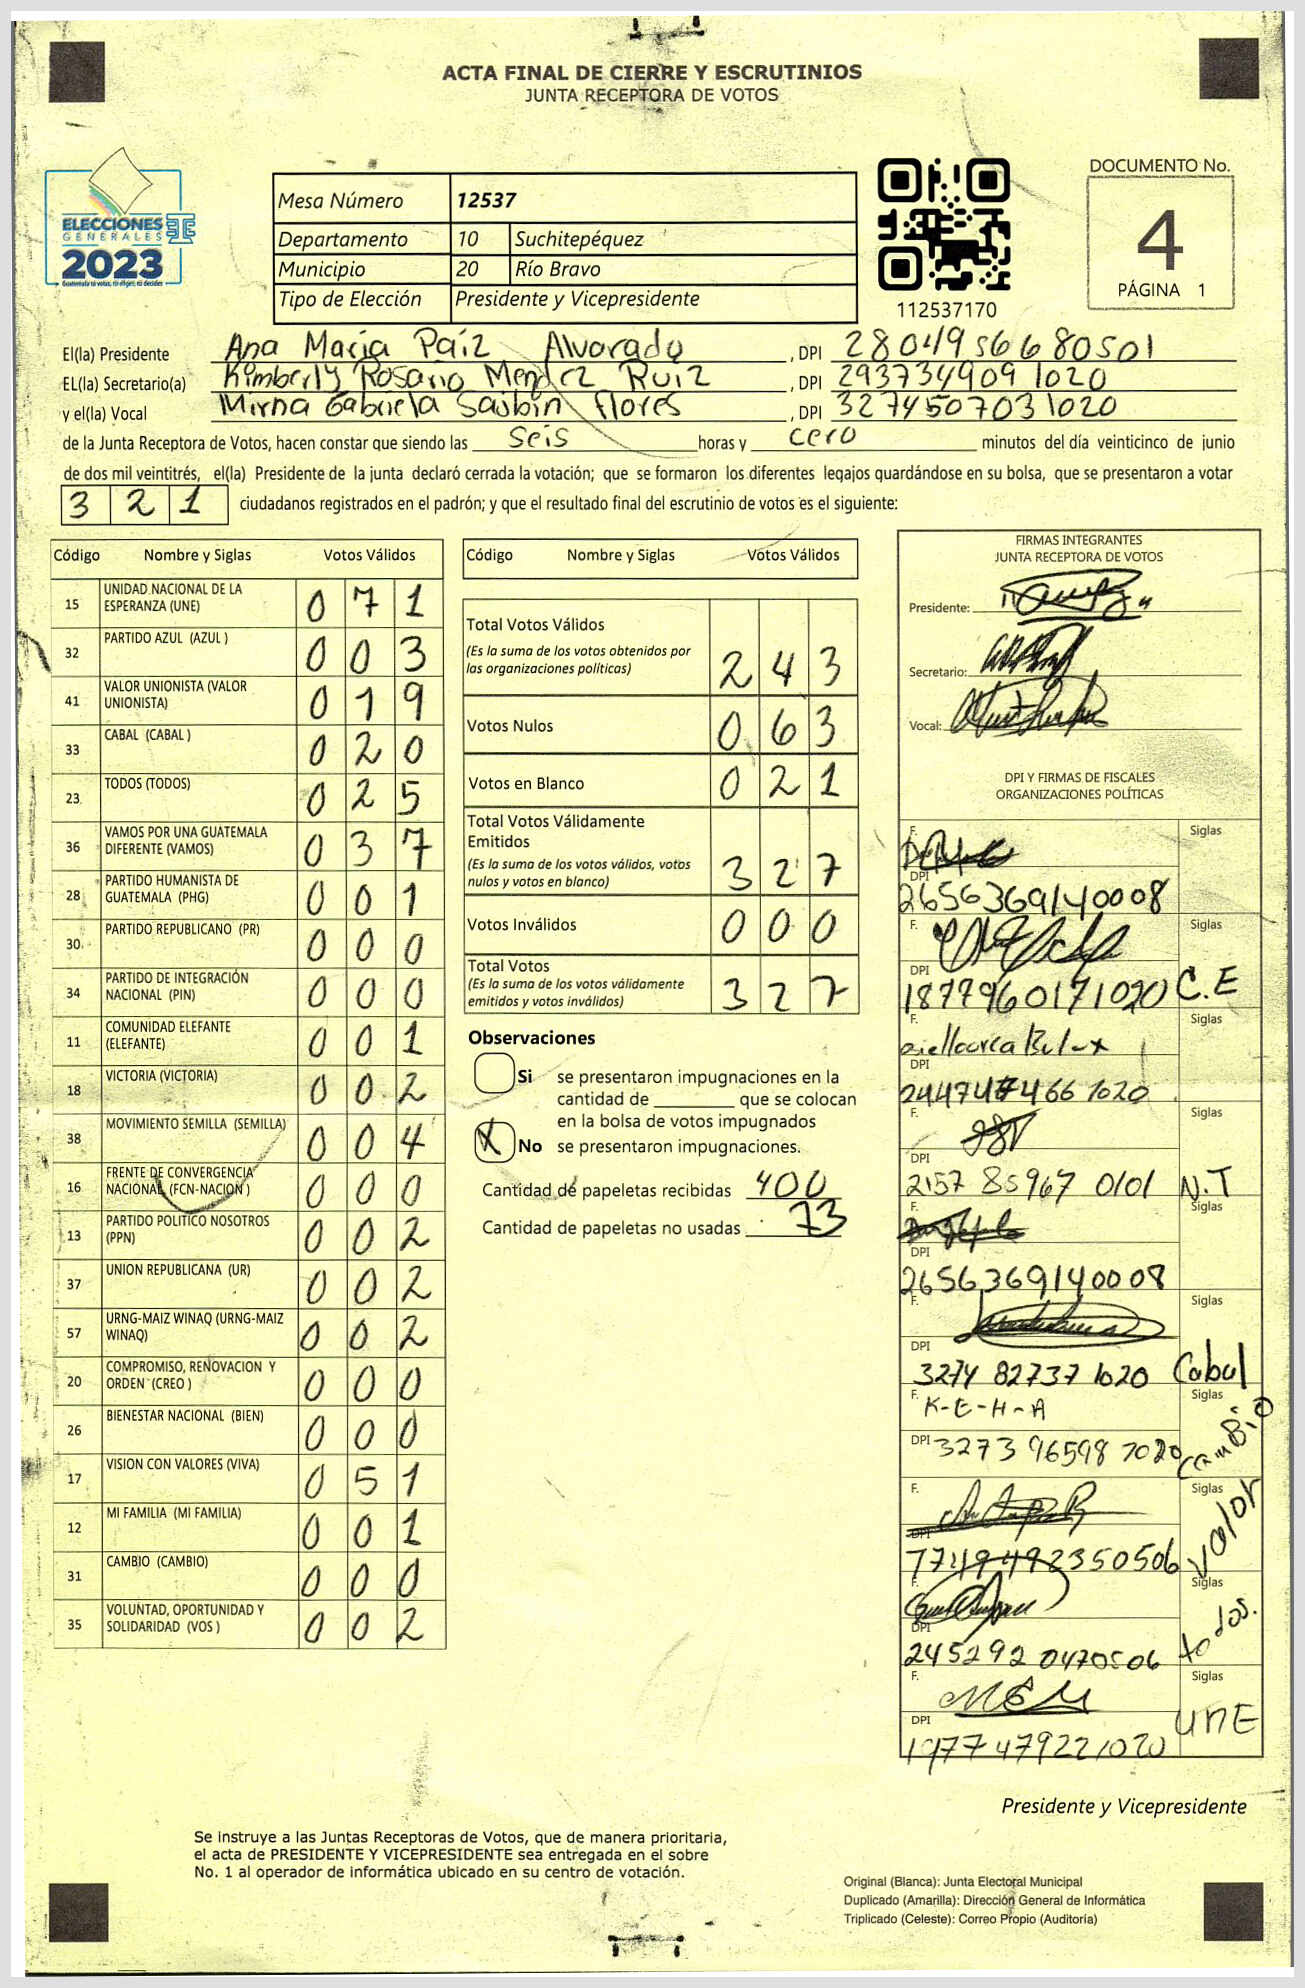 ACTA FINAL DE CIERRE Y ESCRUTINIOS
JUNTA RECEPTORA DE VOTOS
ELECCIONES
GENERALES
2023
Guatemala tú votas, tú eliges, tú decides
Mesa Número 12537
Departamento 10 Suchitepéquez
Municipio 20 Río Bravo
Tipo de Elección Presidente y Vicepresidente
112537170
DOCUMENTO No.
4
PÁGINA 1
El(la) Presidente Ana Maria Paíz Alvarado , DPI 2804956680501
EL(la) Secretario(a) Kimberly Rosario Mendez Ruiz , DPI 2937349091020
y el(la) Vocal Mirna Gabriela Saubin flores , DPI 3274507031020
de la Junta Receptora de Votos, hacen constar que siendo las seis horas y cero minutos del día veinticinco de junio
de dos mil veintitrés, el(la) Presidente de la junta declaró cerrada la votación; que se formaron los diferentes legajos guardándose en su bolsa, que se presentaron a votar
3 2 1 ciudadanos registrados en el padrón; y que el resultado final del escrutinio de votos es el siguiente:
Código Nombre y Siglas Votos Válidos
15 UNIDAD NACIONAL DE LA ESPERANZA (UNE) 0 7 1
32 PARTIDO AZUL (AZUL ) 0 0 3
41 VALOR UNIONISTA (VALOR UNIONISTA) 0 1 9
33 CABAL (CABAL ) 0 2 0
23 TODOS (TODOS) 0 2 5
36 VAMOS POR UNA GUATEMALA DIFERENTE (VAMOS) 0 3 7
28 PARTIDO HUMANISTA DE GUATEMALA (PHG) 0 0 1
30 PARTIDO REPUBLICANO (PR) 0 0 0
34 PARTIDO DE INTEGRACIÓN NACIONAL (PIN) 0 0 0
11 COMUNIDAD ELEFANTE (ELEFANTE) 0 0 1
18 VICTORIA (VICTORIA) 0 0 2
38 MOVIMIENTO SEMILLA (SEMILLA) 0 0 4
16 FRENTE DE CONVERGENCIA NACIONAL (FCN-NACION ) 0 0 0
13 PARTIDO POLITICO NOSOTROS (PPN) 0 0 2
37 UNION REPUBLICANA (UR) 0 0 2
57 URNG-MAIZ WINAQ (URNG-MAIZ WINAQ) 0 0 2
20 COMPROMISO, RENOVACION Y ORDEN (CREO ) 0 0 0
26 BIENESTAR NACIONAL (BIEN) 0 0 0
17 VISION CON VALORES (VIVA) 0 5 1
12 MI FAMILIA (MI FAMILIA) 0 0 1
31 CAMBIO (CAMBIO) 0 0 0
35 VOLUNTAD, OPORTUNIDAD Y SOLIDARIDAD (VOS ) 0 0 2
Código Nombre y Siglas Votos Válidos
Total Votos Válidos
(Es la suma de los votos obtenidos por
las organizaciones políticas) 2 4 3
Votos Nulos 0 6 3
Votos en Blanco 0 2 1
Total Votos Válidamente
Emitidos
(Es la suma de los votos válidos, votos
nulos y votos en blanco) 3 2 7
Votos Inválidos 0 0 0
Total Votos
(Es la suma de los votos válidamente
emitidos y votos inválidos) 3 2 7
Observaciones
Si se presentaron impugnaciones en la
cantidad de ________ que se colocan
en la bolsa de votos impugnados
X No se presentaron impugnaciones.
Cantidad de papeletas recibidas 400
Cantidad de papeletas no usadas 73
FIRMAS INTEGRANTES
JUNTA RECEPTORA DE VOTOS
Presidente:
Secretario:
Vocal:
DPI Y FIRMAS DE FISCALES
ORGANIZACIONES POLÍTICAS
F. Siglas
DPI
2656369140008
F. Siglas
DPI
1877960171020 C.E
F. Siglas
DPI
F. Siglas
DPI
2157 85967 0101 N.T
F. Siglas
DPI
2656369140008
F. Siglas
DPI
3274 82737 1020 Cabal
F. K-E-H-A Siglas
DPI 3273 96598 1020 cambio
F. Siglas
DPI
7749492350506 Valor
F. Siglas
DPI
245292 0470506 todos.
F. Siglas
DPI
1977479221020 UNE
Presidente y Vicepresidente
Se instruye a las Juntas Receptoras de Votos, que de manera prioritaria,
el acta de PRESIDENTE Y VICEPRESIDENTE sea entregada en el sobre
No. 1 al operador de informática ubicado en su centro de votación.
Original (Blanca): Junta Electoral Municipal
Duplicado (Amarilla): Dirección General de Informática
Triplicado (Celeste): Correo Propio (Auditoría)